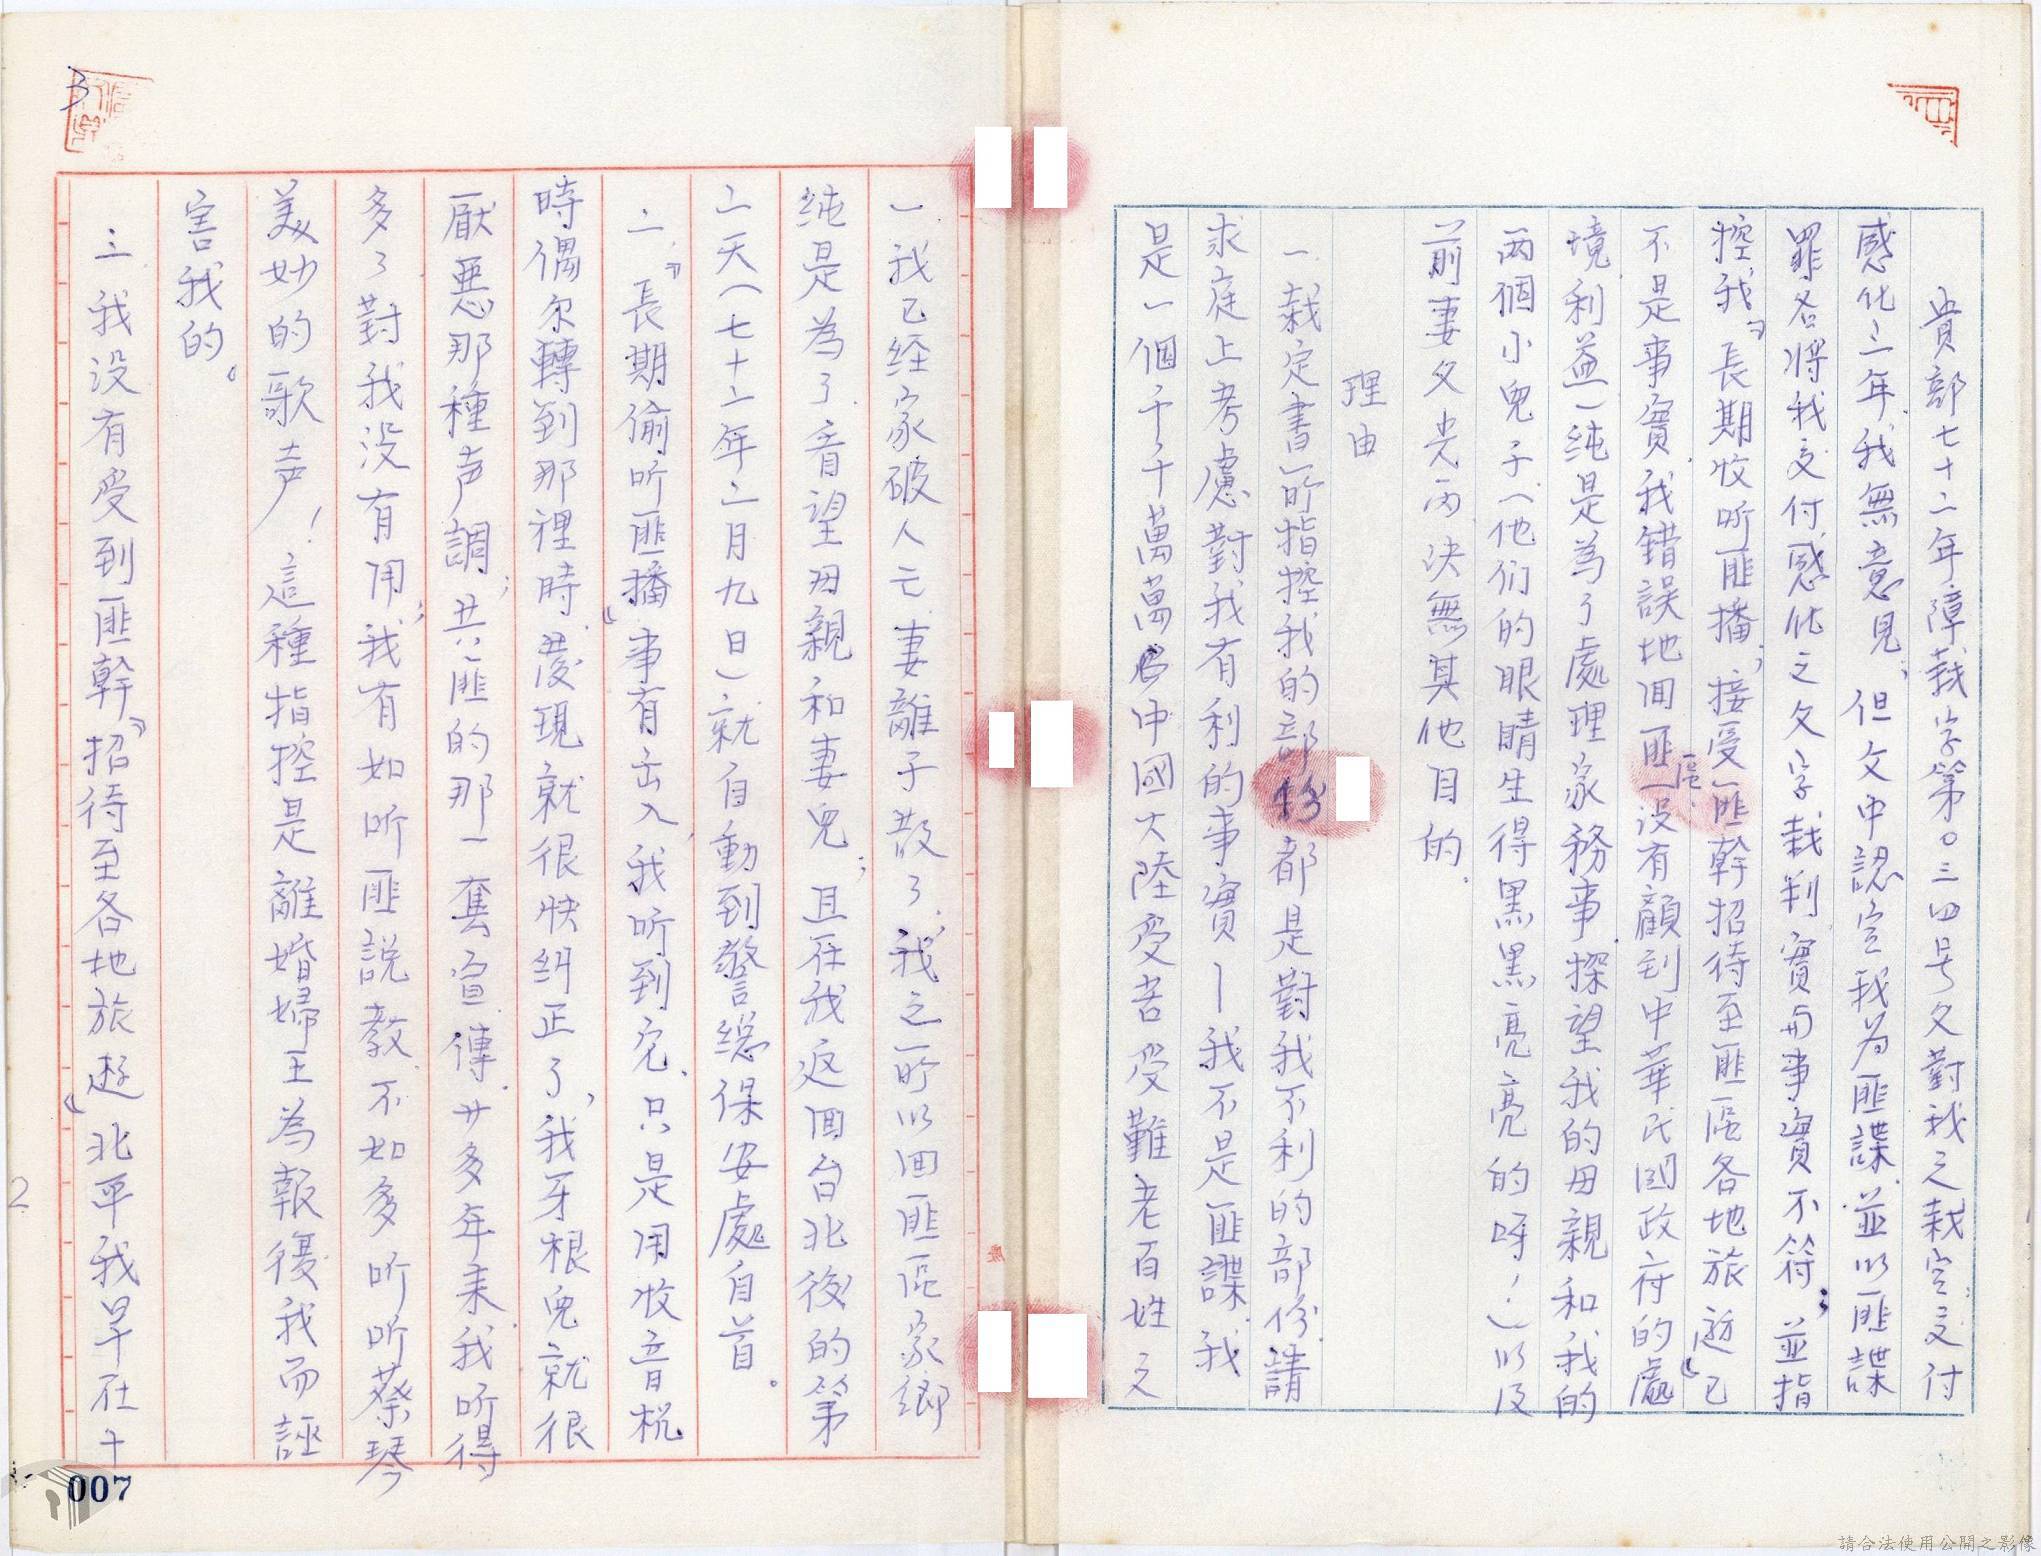 貴部七十二年障裁字第〇三四号文對我之裁定交付
感化三年我無意見，但文中認定我为匪諜．並以匪諜
罪各將我交付感化之文字裁判實與事實不符；並指
控我「長期收听匪播，接受匪幹招待至匪區各地旅遊」已
不是事實．我錯误地回匪區．没有顧到中華民國政府的處
境利益一纯是為了處理家務事．探望我的母親和我的
両個小兒子（他们的眼睛生得黑黑亮亮的呀！）以及
前妻父光両．決無其他目的．
理由
一．裁定書所指控我的部份都是對我不利的部份．請
求庭上考慮對我有利的事實—我不是匪諜．我
是一個千千萬萬中國大陸受苦受難老百姓之
一．我已经家破人亡．妻離子散了，我之所以回匪區家鄉
纯是為了看望母親和妻兒；且在我返回台北後的第
二天（七十二年二月九日）就自動到警總保安處自首。
二．「長期偷听匪播」事有岀入，我听到完．只是用收音机
時偶尔轉到那裡時．發現就很快纠正了，我牙根兒就很
厭惡那種声調；共匪的那一套宣傳．廿多年来我听得
多了對我没有用；我有如听匪説教．不如多听听蔡琴
美妙的歌声！這種指控是離婚婦王為報復我而誣
害我的。
三．我没有受到匪幹「招待至各地旅遊」北平我早在十
2
007
請合法使用公開之影像